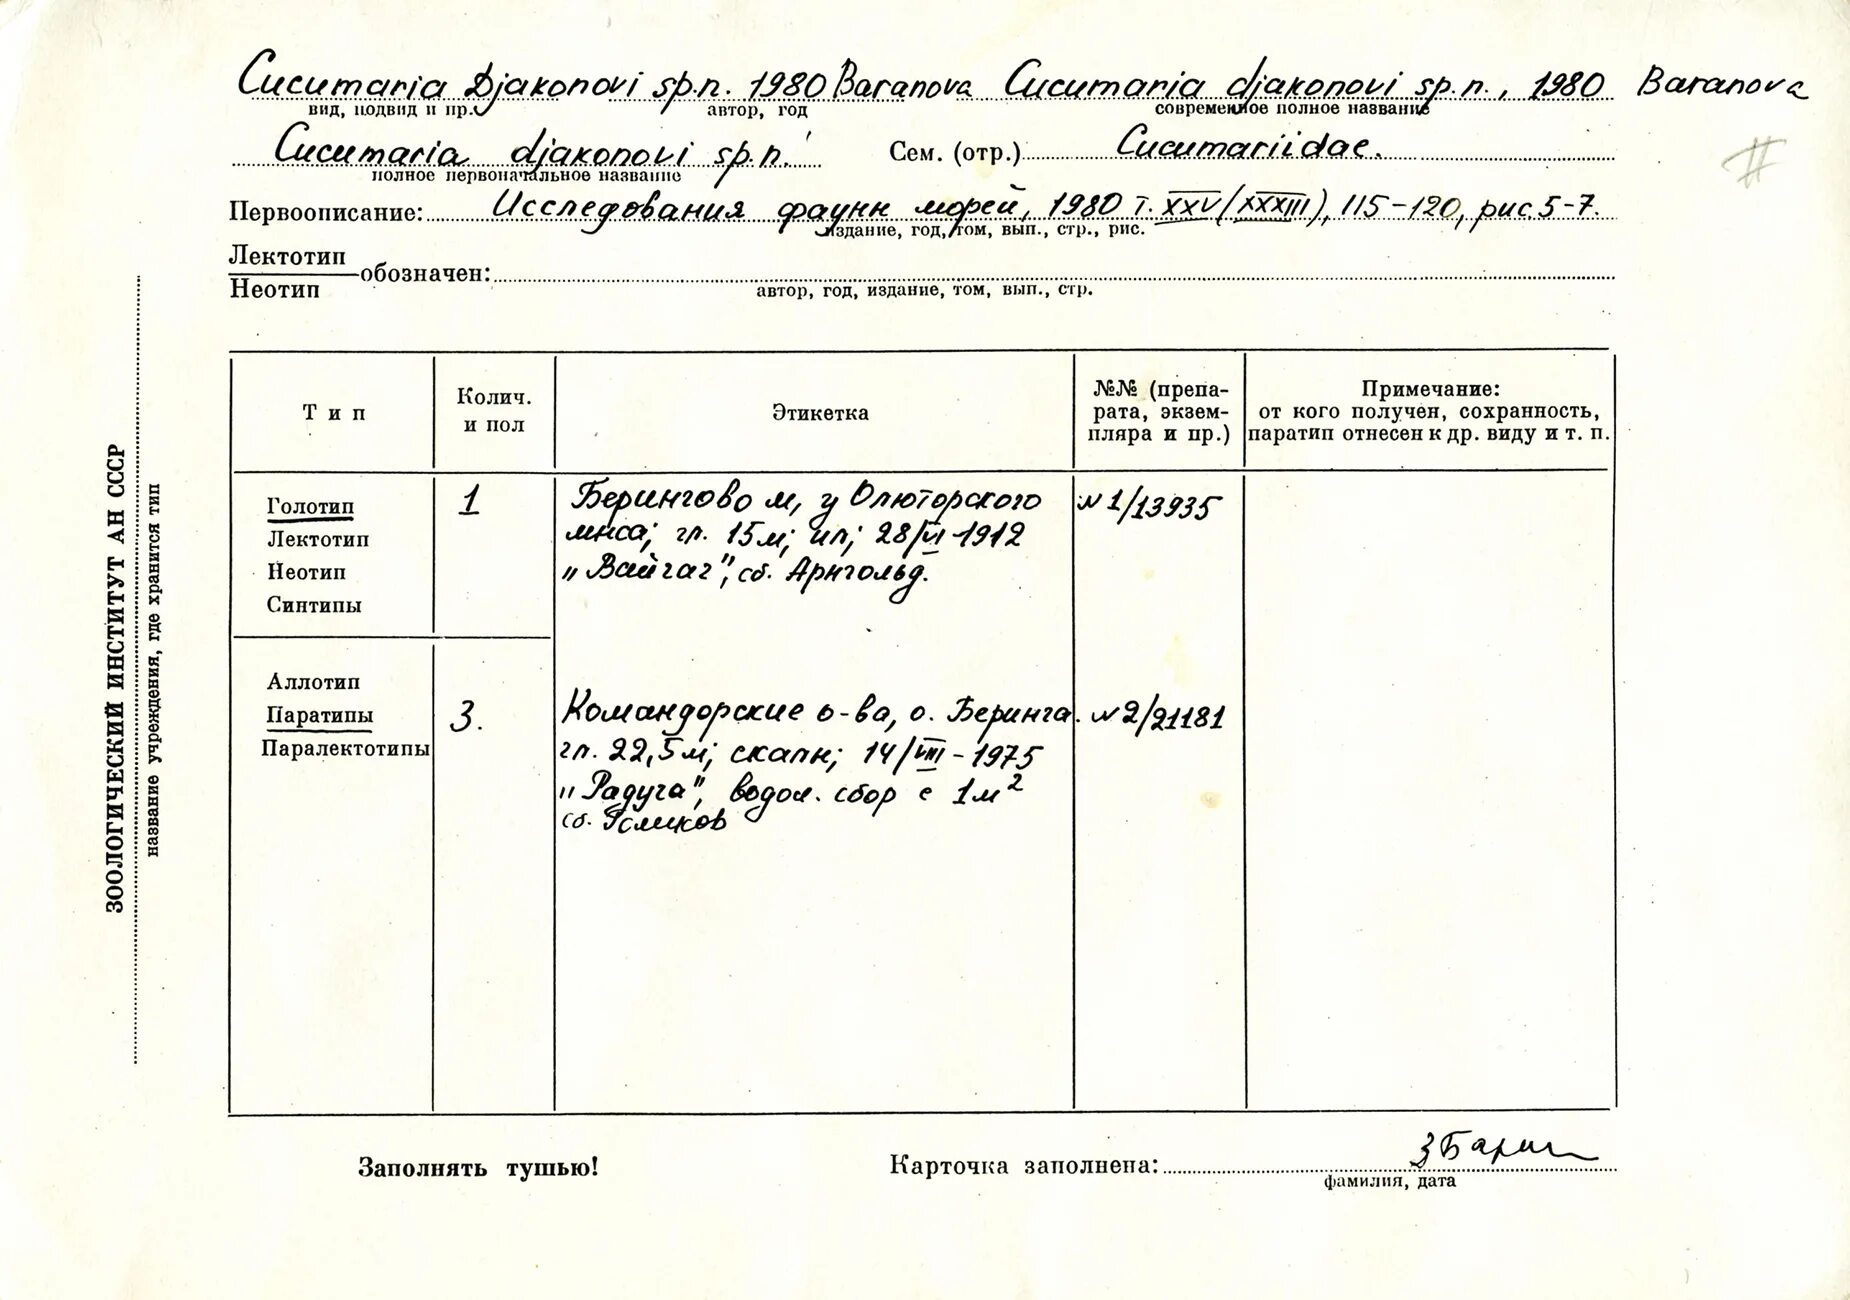 Cucumaria Djakonovi sp.n. 1980 Baranova Cucumaria djakonovi sp.n., 1980 Baranova
вид, подвид и пр. автор, год современное полное название
Cucumaria djakonovi sp.n. Сем. (отр.) Cucumariidae.
полное первоначальное название
Первоописание: Исследования фаун морей, 1980 т. XXV (XXXIII), 115-120, рис. 5-7.
издание, год, том, вып., стр., рис.
Лектотип
обозначен:
Неотип
автор, год, издание, том, вып., стр.
ЗООЛОГИЧЕСКИЙ ИНСТИТУТ АН СССР
название учреждения, где хранится тип
Тип
Колич.
и пол
Этикетка
№№ (препа-
рата, экзем-
пляра и пр.)
Примечание:
от кого получен, сохранность,
паратип отнесен к др. виду и т. п.
Голотип 1 Берингово м, у Олюторского №1/13935
Лектотип мыса; гл. 15м; ил; 28/VI-1912
Неотип „Вайгач", сб. Арнгольд.
Синтипы
Аллотип
Паратипы 3. Командорские о-ва, о. Беринга. №2/21181
Паралектотипы гл. 22,5м; скалы; 14/VIII-1975
„Радуга", водол. сбор с 1м²
сб.
Заполнять тушью! Карточка заполнена:
фамилия, дата